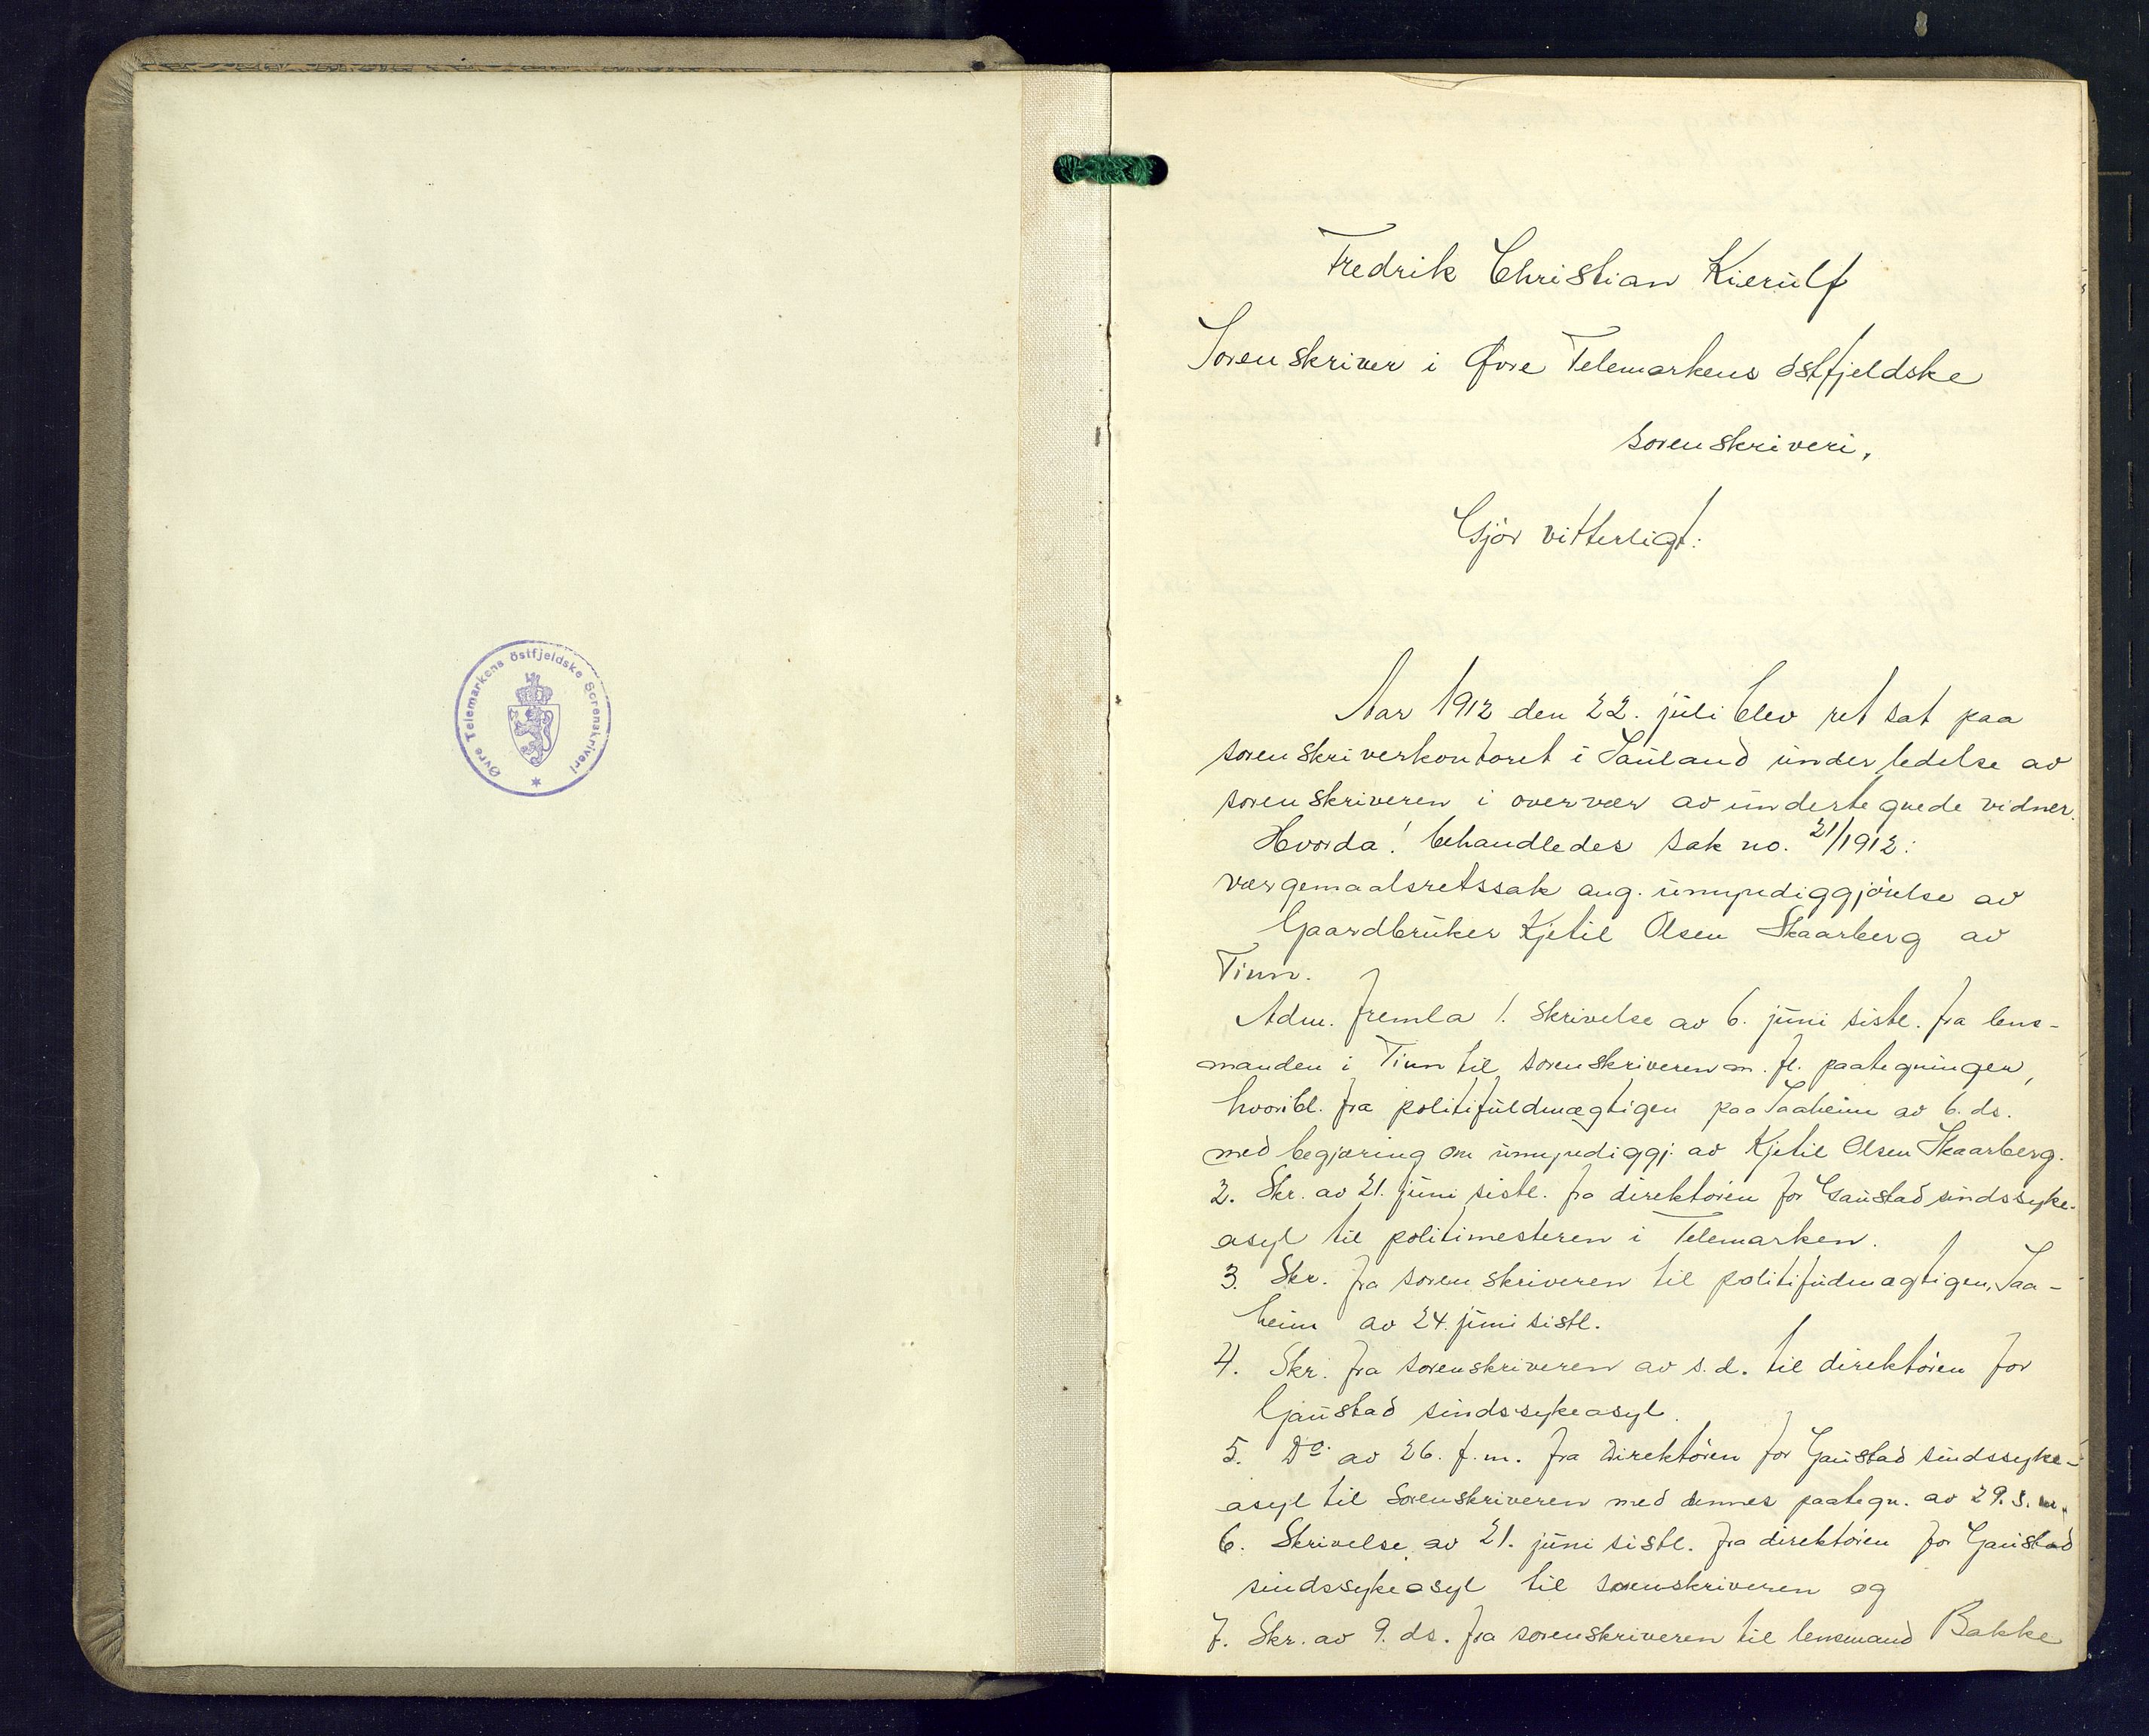 Øvre Telemarkens östfjeldske Sorenskriveri
Fredrik Christian Kierulf
Sorenskriver i Øvre Telemarkens østfjeldske
sorenskriveri,
Gjör vitterligt:
Aar 1912 den 22. juli blev ret sat paa
sorenskriverkontoret i Sauland under ledelse av
sorenskriveren i overvær av undertegnede vidner.
Hvorda! behandledes sak no. 21/1912:
værgemaalsretssak ang. umyndiggjörelse av
Gaardbruker Kjetil Olsen Skaarberg av
Tinn.
Adm. fremla 1. Skrivelse av 6. juni sistl. fra lens-
manden i Tinn til sorenskriveren m. fl. paategninger,
hvoribl. fra politifuldmægtigen paa Saaheim av 6. ds.
med begjæring om umyndiggj. av Kjetil Olsen Skaarberg.
2. Skr. av 21. juni sistl. fra direktören for Gaustad sindssyke-
asyl til politimesteren i Telemarken.
3. Skr. fra sorenskriveren til politifudmægtigen, Saa-
heim av 24. juni sistl.
4. Skr. fra sorenskriveren av s. d. til direktören for
Gaustad sindssykeasyl.
5. Do. av 26. f. m. fra direktören for Gaustad sindssyke-
asyl til Sorenskriveren med dennes paategn. av 29. s. m.
6. Skrivelse av 21. juni sistl. fra direktören for Gaustad
sindssykeasyl til sorenskriveren og
7. Skr. av 9. ds. fra sorenskriveren til lensmand Bakke